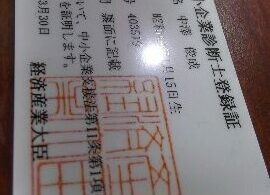 小企業診断士登録証
名 中澤 俊成
月15日生
号
裏面に記載
いて、中小企業支援法第11条第1項
を証明します。
3月30日
経済産業大臣